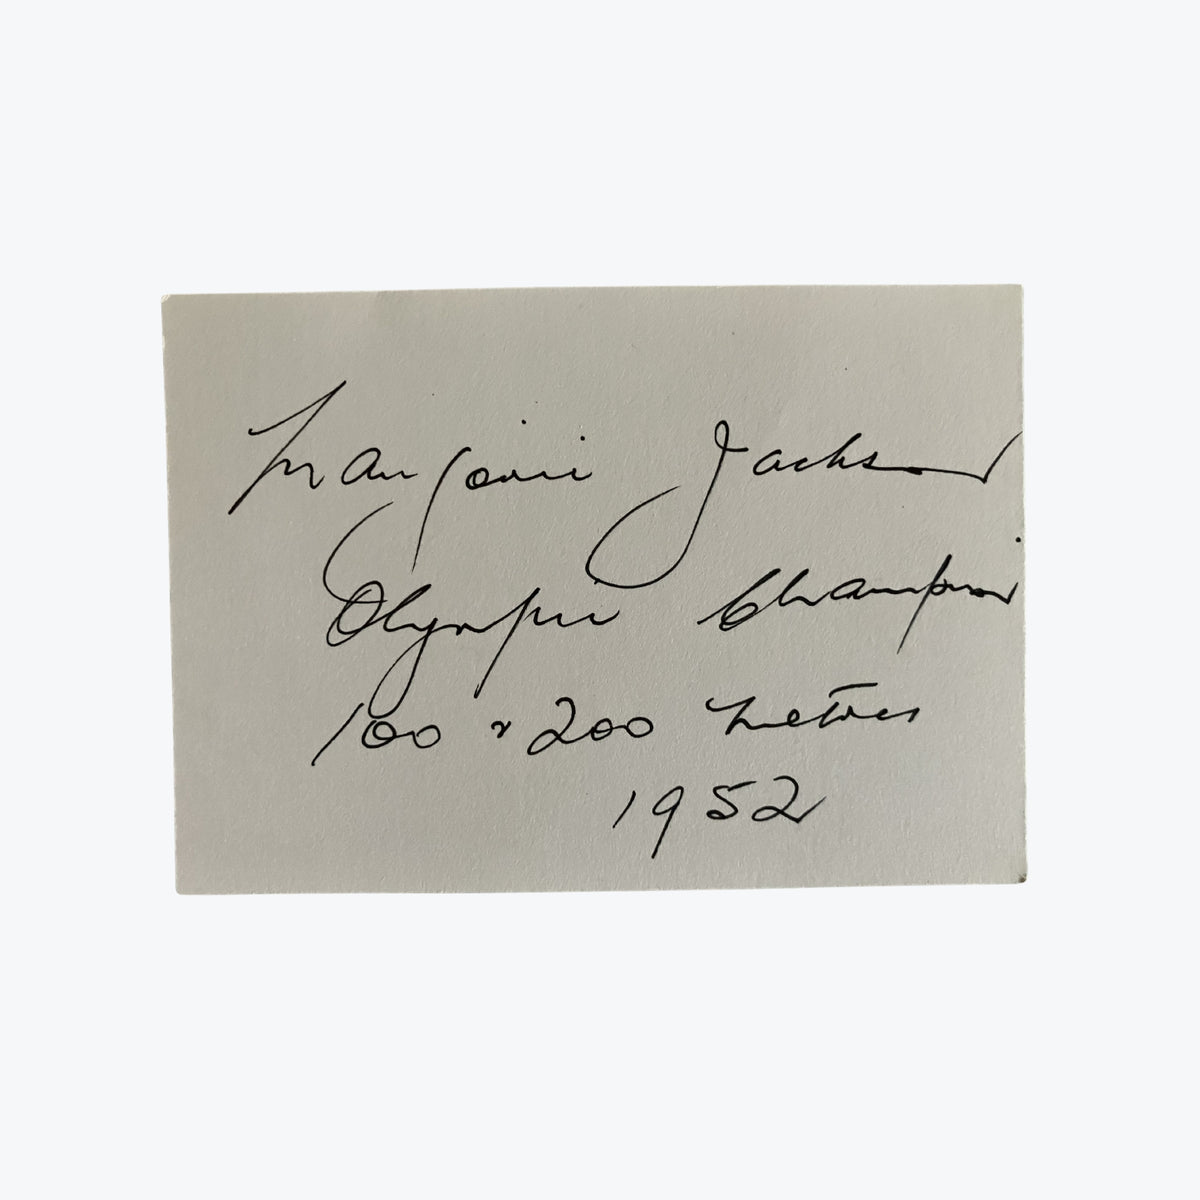 Marjorie Jackson
Olympic Champion
100 & 200 Metres
1952